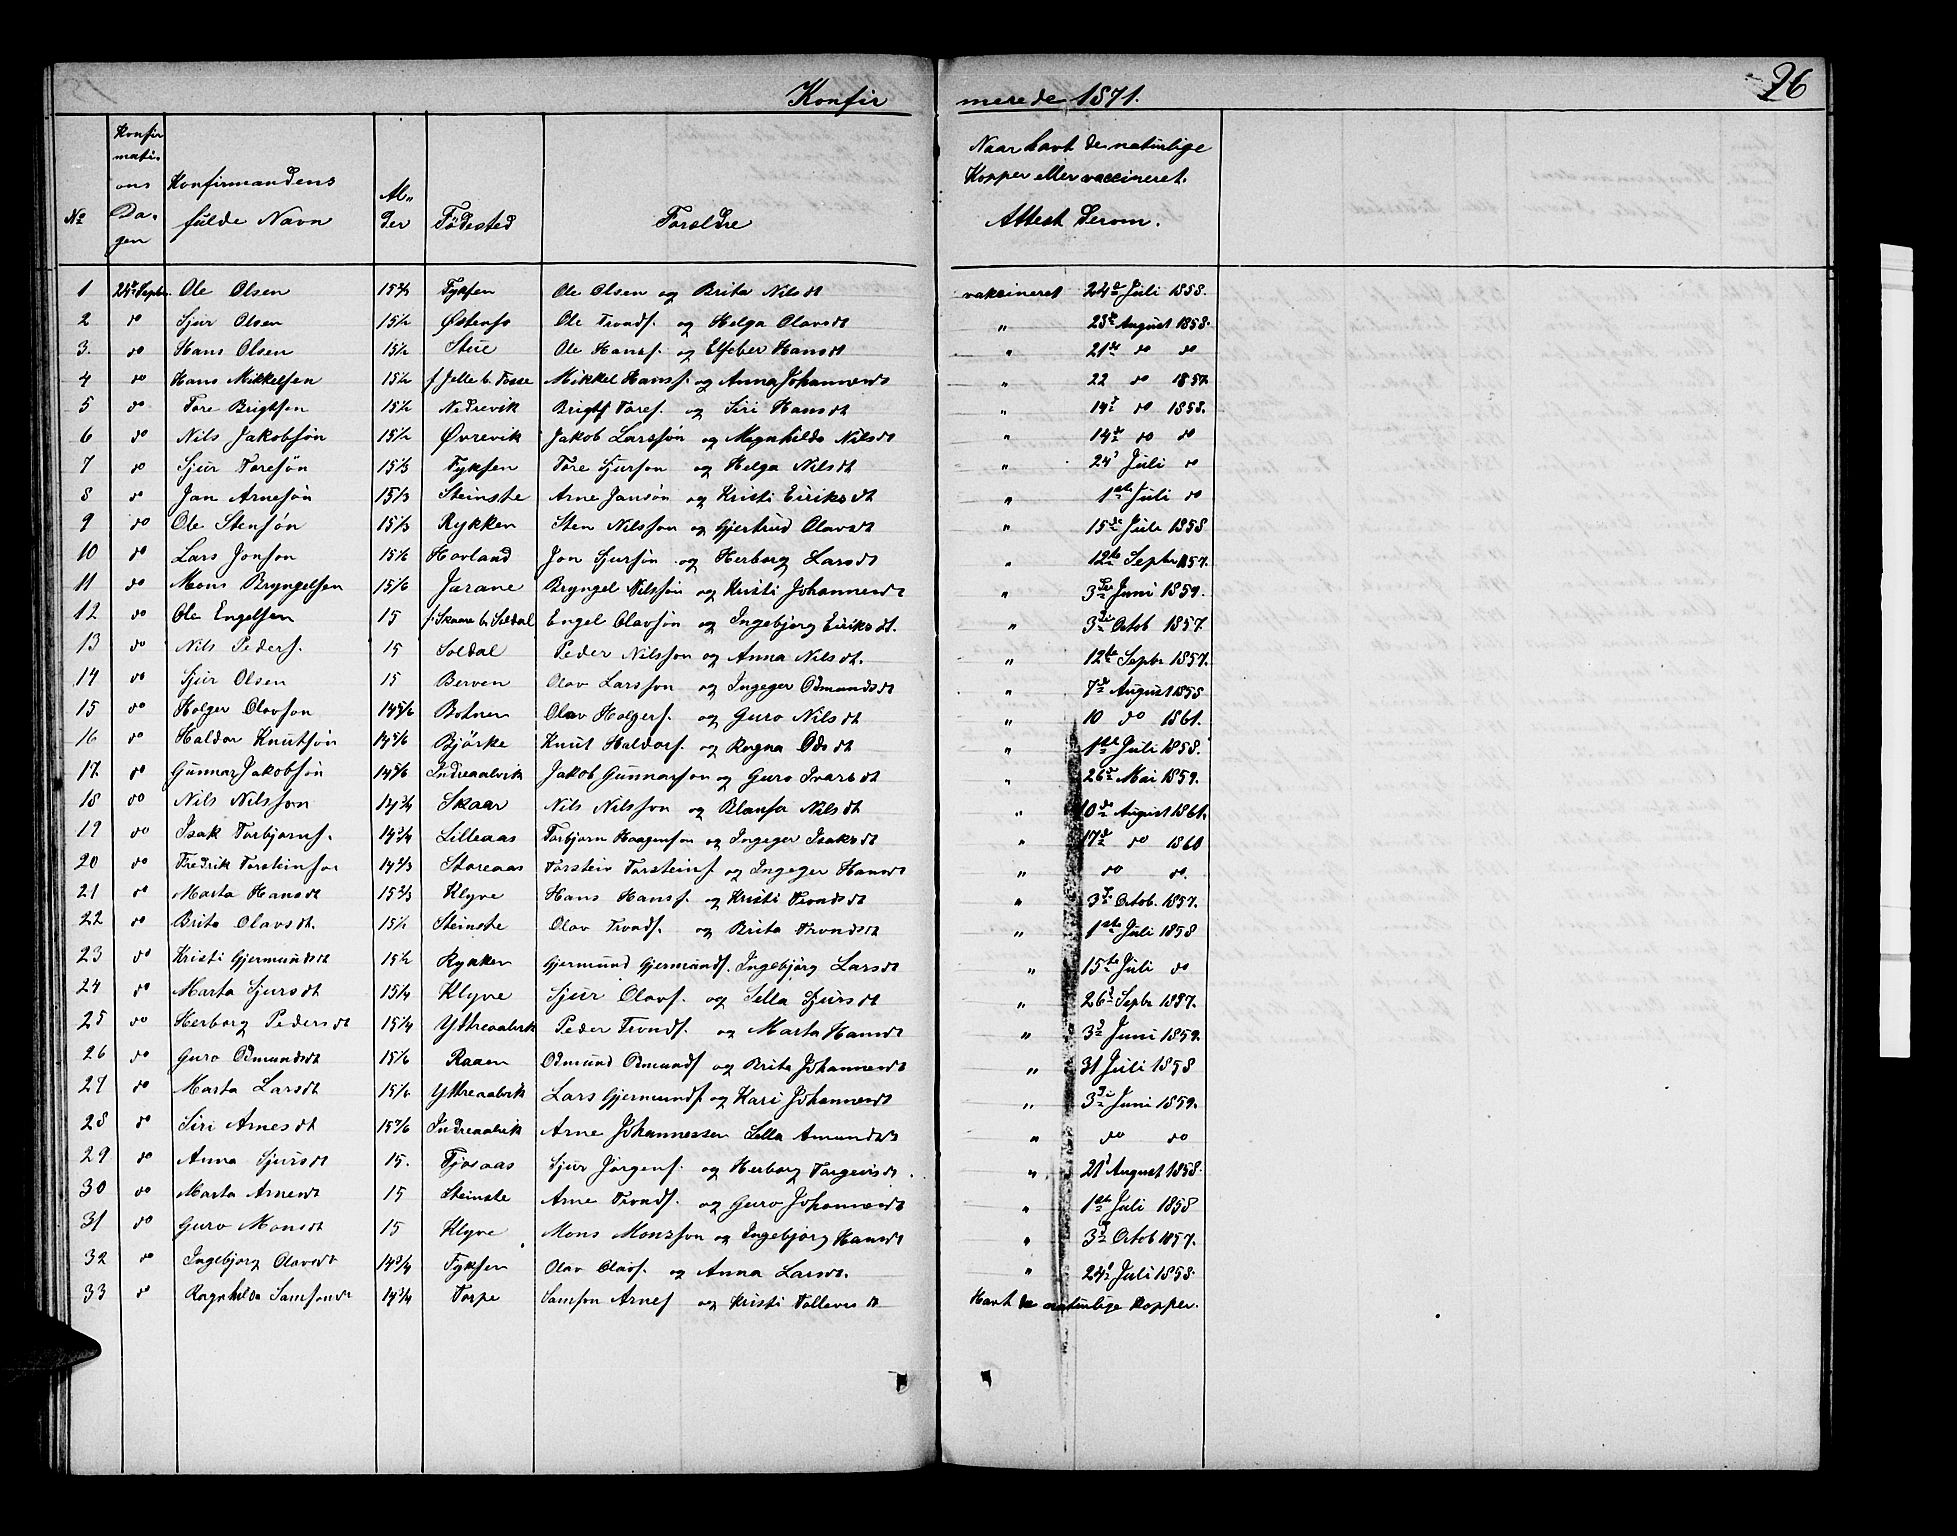 Konfirmerede 1871.
26
No
Konfirmations Dagen
Konfirmandens fulde Navn
Alder
Födested
Forældre
Naar havt de naturlige Kopper eller vaccineret. Attest derom.
1 24de Septbr. Ole Olsen 15 2/3 Fyksen Ole Olsen og Brita Nilsdt vakcineret 24de Juli 1858.
2 do Sjur Olsen 15 1/2 Østensø Ole Trondf. og Helga Olavsdt " 23de August 1858.
3. do Hans Olsen 15 1/2 Stue Ole Hansf. og Elseber Hansdt " 21de do do
4 do Hans Mikkelsen 15 1/2 Mikkel Hansf. og Anna Johannesdt " 22 do 1857.
5 do Tore Brigtsen 15 1/2 Nedrevik Brigtf Toref. og Siri Hansdt " 14d do 1858.
6 do Nils Jakobsön 15 1/2 Øvrevik Jakob Larssön og Magnhilda Nilsdt " 14de do do
7 do Sjur Toresön 15 1/3 Fyksen Tore Sjurson og Helga Nilsdt " 24d Juli do
8 do Jan Arnesön 15 1/3 Steinstø Arne Jansön og Kristi Eiriksdt " 1ste Juli do
9 do Ole Stensön 15 1/3 Rykken Sten Nilsson og Gjertrud Olavsdt " 15de Juli 1858
10 do Lars Jonson 15 1/6 Hovland Jon Sjursön og Herborg Larsdt " 12te Septbr 1857.
11 do Mons Bryngelsen 15 1/6 Jarane Bryngel Nilssön og Kristi Johannesdt " 3die Juni 1859.
12 do Ole Engelsen 15 f. Skaare b. Soldal Engel Olavsön og Ingebjorg Eiriksdt. " 3die Octob 1857.
13 do Nils Pedersf. 15 Soldal Peder Nilsson og Anna Nilsdt. " 12te Septbr 1857.
14 do Sjur Olsen 15 Berven Olav Larsson og Ingeger Odmundsdt " 7de August 1858
15 do Holger Olavson 14 5/6 Botnen Olav Holgerf. og Guro Nilsdt " 10 do 1861.
16 do Haldor Knutsön 14 5/6 Björke Knut Haldorf. og Ragna Odsdt " 1ste Juli 1858.
17. do Gunnar Jakobsön 14 5/6 Indreaalvik Jakob Gunnarson og Guro Ivarsdt " 26de Mai 1859.
18 do Nils Nilsson 14 3/4 Skaar Nils Nilsson og Blansa Nilsdt " 10de August 1861.
19 do Isak Torbjornf. 14 3/4 Lilleaas Torbjorn Haagenson og Ingeger Isaksdt " 17de do 1860
20 do Fredrik Torsteinson 14 2/3 Storeaas Torstein Torsteinf. og Ingeger Hansdt " do do.
21 do Marta Hansdt 15 2/3 Klyve Hans Hansf. og Kristi Trondsdt " 3die Octob. 1857.
22 do Brita Olavsdt. 15 1/2 Steinstø Olav Trondf. og Brita Trondsdt " 1ste Juli 1858
23 do Kristi Gjermundsdt 15 1/2 Rykken Gjermund Gjermundf. Ingebjörg Larsdt " 15te Juli do
24 do Marta Sjursdt 15 1/4 Klyve Sjur Olavf. og Sella Sjursdt " 26d Septbr 1857.
25 do Herborg Pedersdt 15 1/4 Ytreaalvik Peder Trondf. og Marta Hansdt " 3d Juni 1859.
26 do Guro Odmundsdt 15 1/6 Raaen Odmund Odmundf. og Brita Johannesdt " 31 Juli 1858
27 do Marta Larsdt 15 1/6 Ytreaalvik Lars Gjermundf. og Kari Johannesdt " 3die Juni 1859.
28 do Siri Arnesdt 15 1/6 Indreaalvik Arne Johannessen Sella Amundsdt " do do
29 do Anna Sjursdt 15. Tjoraas Sjur Jörgenf. og Herborg Torgeirsdt. " 21d August 1858.
30 do Marta Arnesdt 15 Steinstø Arne Trondf. og Guro Johannesdt " 1ste Juli 1858
31 do Guro Monsdt 15 Klyve Mons Monsson og Ingebjörg Hansdt " 3d Octob 1857.
32 do Ingebjorg Olavsdt 14 3/4 Fyksen Olav Olavf. og Anna Larsdt. " 24d Juli 1858.
33 do Ragnhilda Samsonsdt 14 3/4 Torpe Samson Arnef og Kristi Tollevsdt Havt de naturlige Kopper.